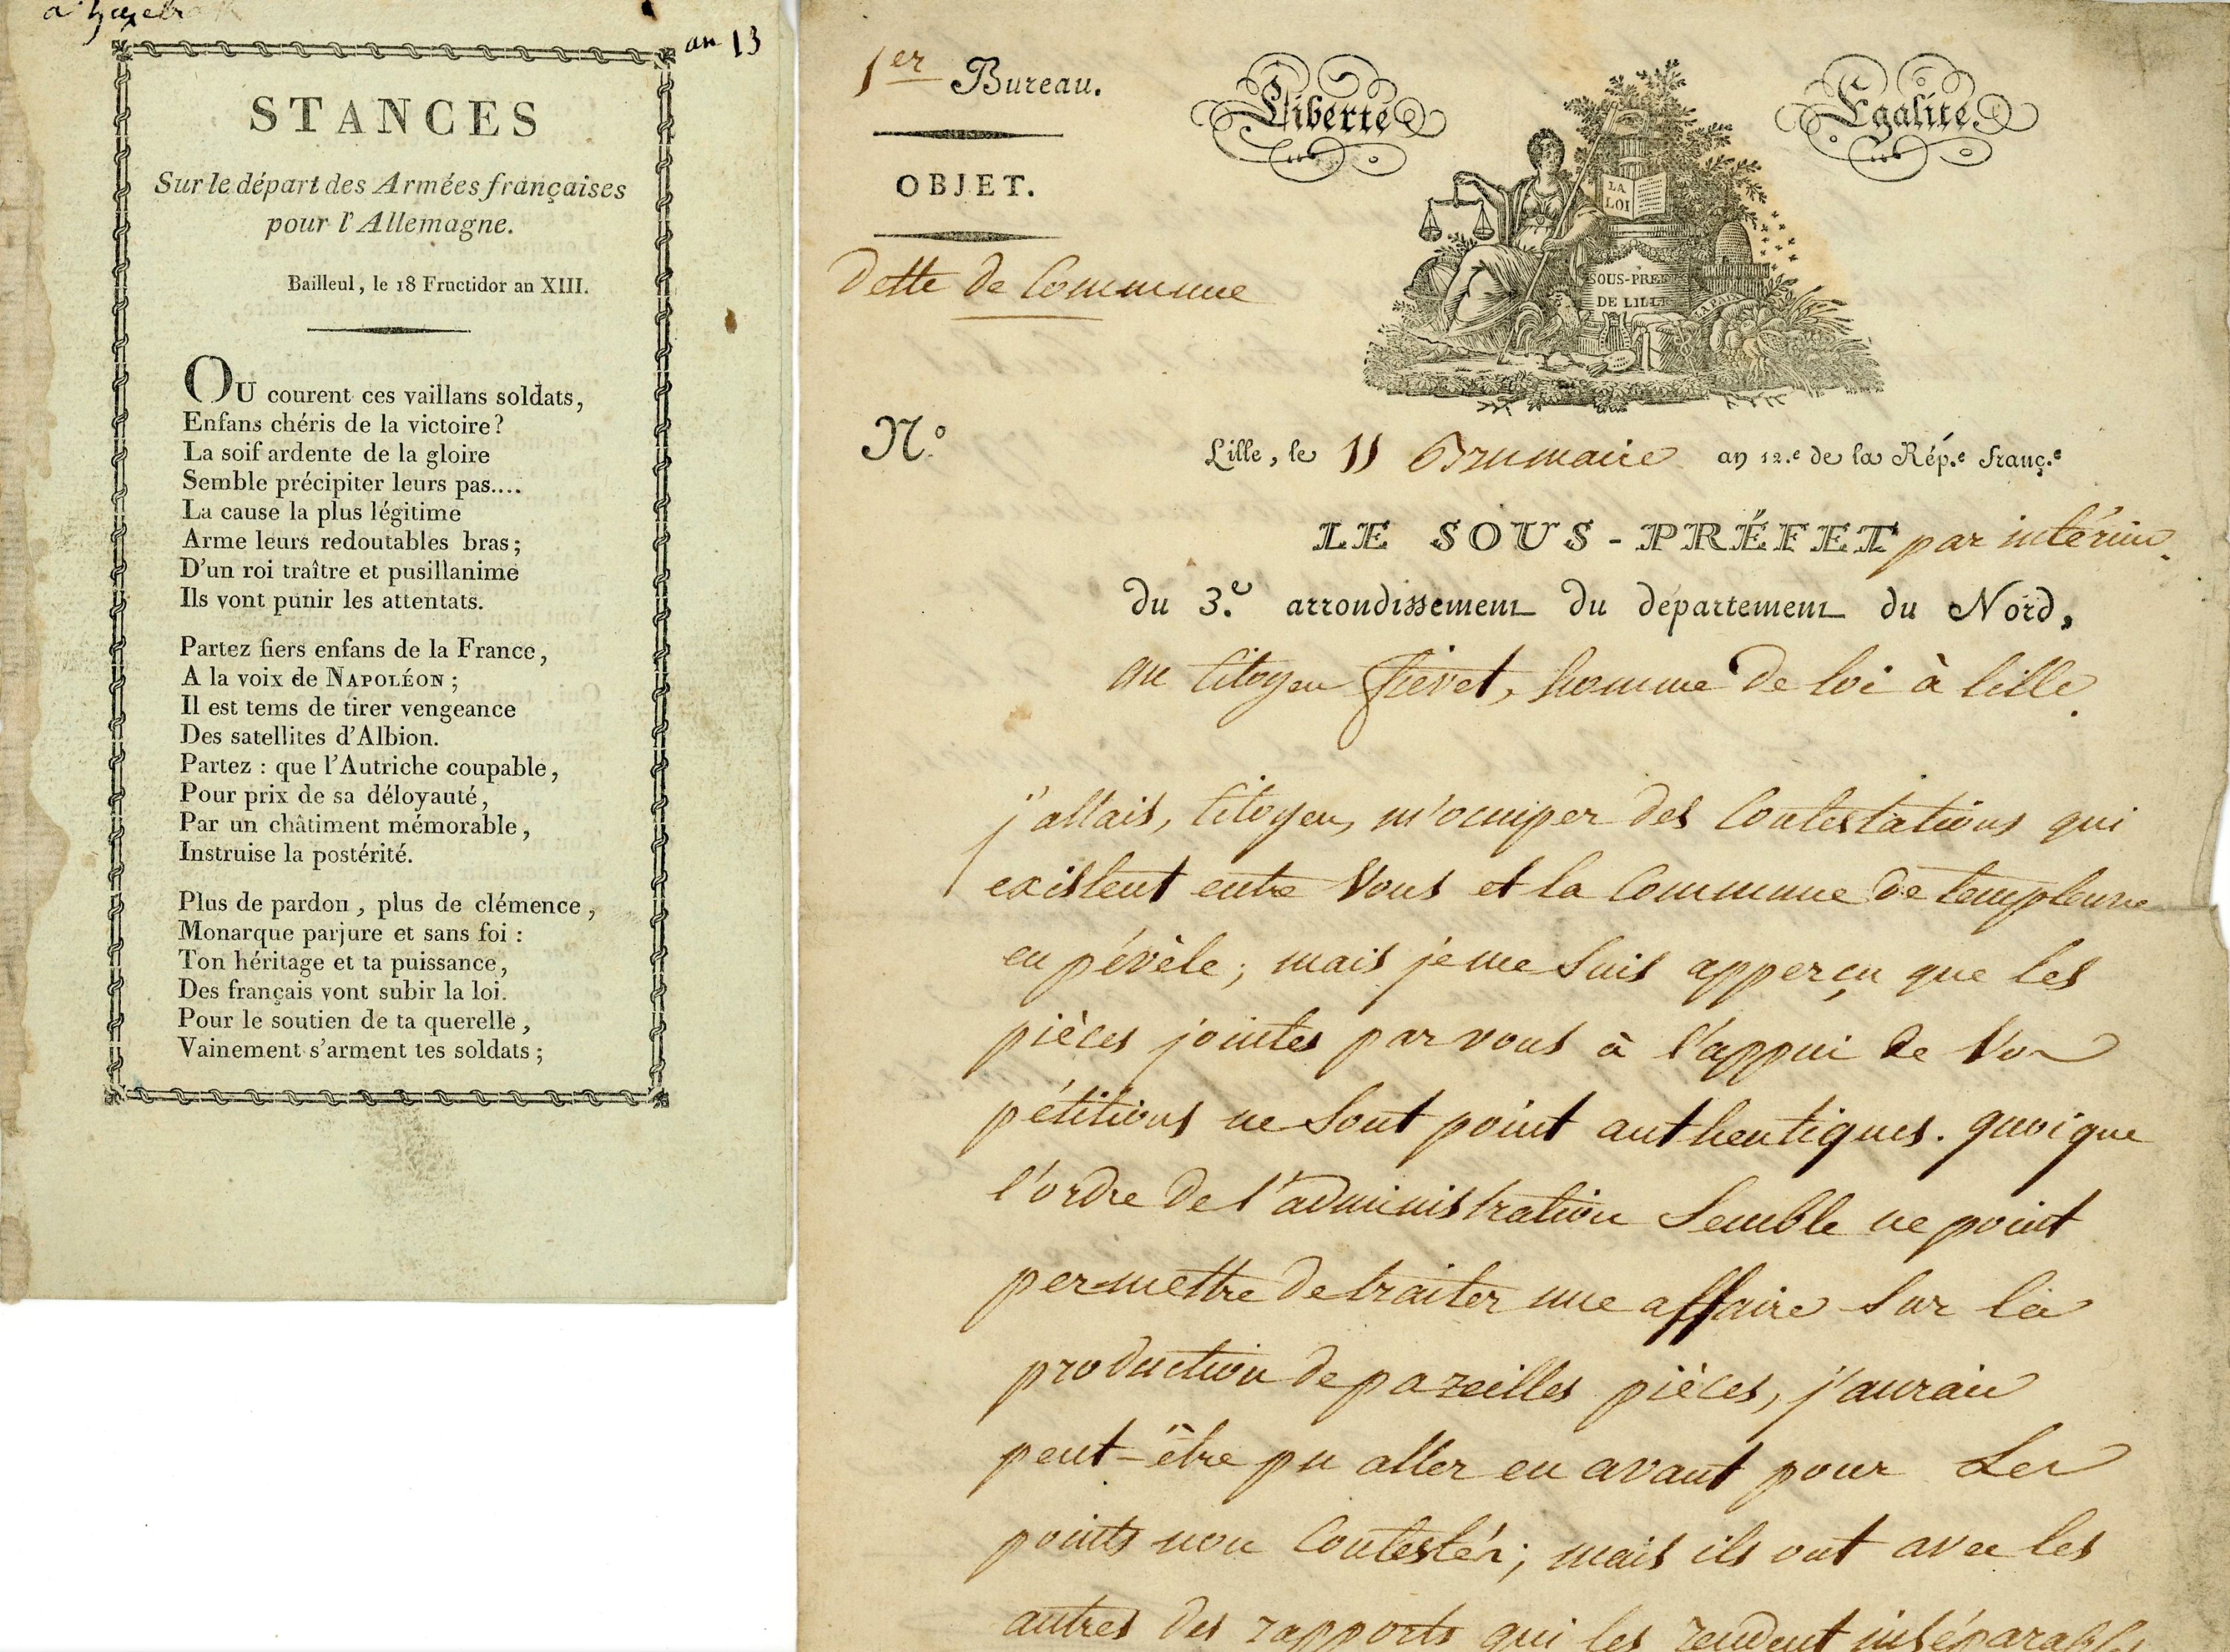 an 13
STANCES
Sur le départ des Armées françaises
pour l'Allemagne.
Bailleul, le 18 Fructidor an XIII.
OU courent ces vaillans soldats,
Enfans chéris de la victoire?
La soif ardente de la gloire
Semble précipiter leurs pas....
La cause la plus légitime
Arme leurs redoutables bras;
D'un roi traître et pusillanime
Ils vont punir les attentats.
Partez fiers enfans de la France,
A la voix de NAPOLÉON;
Il est tems de tirer vengeance
Des satellites d'Albion.
Partez : que l'Autriche coupable,
Pour prix de sa déloyauté,
Par un châtiment mémorable,
Instruise la postérité.
Plus de pardon, plus de clémence,
Monarque parjure et sans foi :
Ton héritage et ta puissance,
Des français vont subir la loi.
Pour le soutien de ta querelle,
Vainement s'arment tes soldats;
1er Bureau.
OBJET.
Dette de Commune
Liberté
Egalité
LA
LOI
SOUS-PREF
DE LILLE
LA PAIX
N.o
Lille, le 11 Brumaire an 12.e de la Rép.e franç.e
LE SOUS-PRÉFET par intérim
du 3.e arrondissement du département du Nord,
au Citoyen fievet, homme de loi à lille.
j'allais, Citoyen, m'occuper des Contestations qui
existent entre Vous et la Commune de templeuve
en pévèle; mais je me suis apperçu que les
pièces jointes par vous à l'appui de Vos
pétitions ne sont point authentiques. quoique
l'ordre de l'administration semble ne point
permettre de traiter une affaire sur la
production de pareilles pièces, j'aurais
peut-être pu aller en avant pour les
points non Contestés; mais ils ont avec les
autres des rapports qui les rendent inséparables